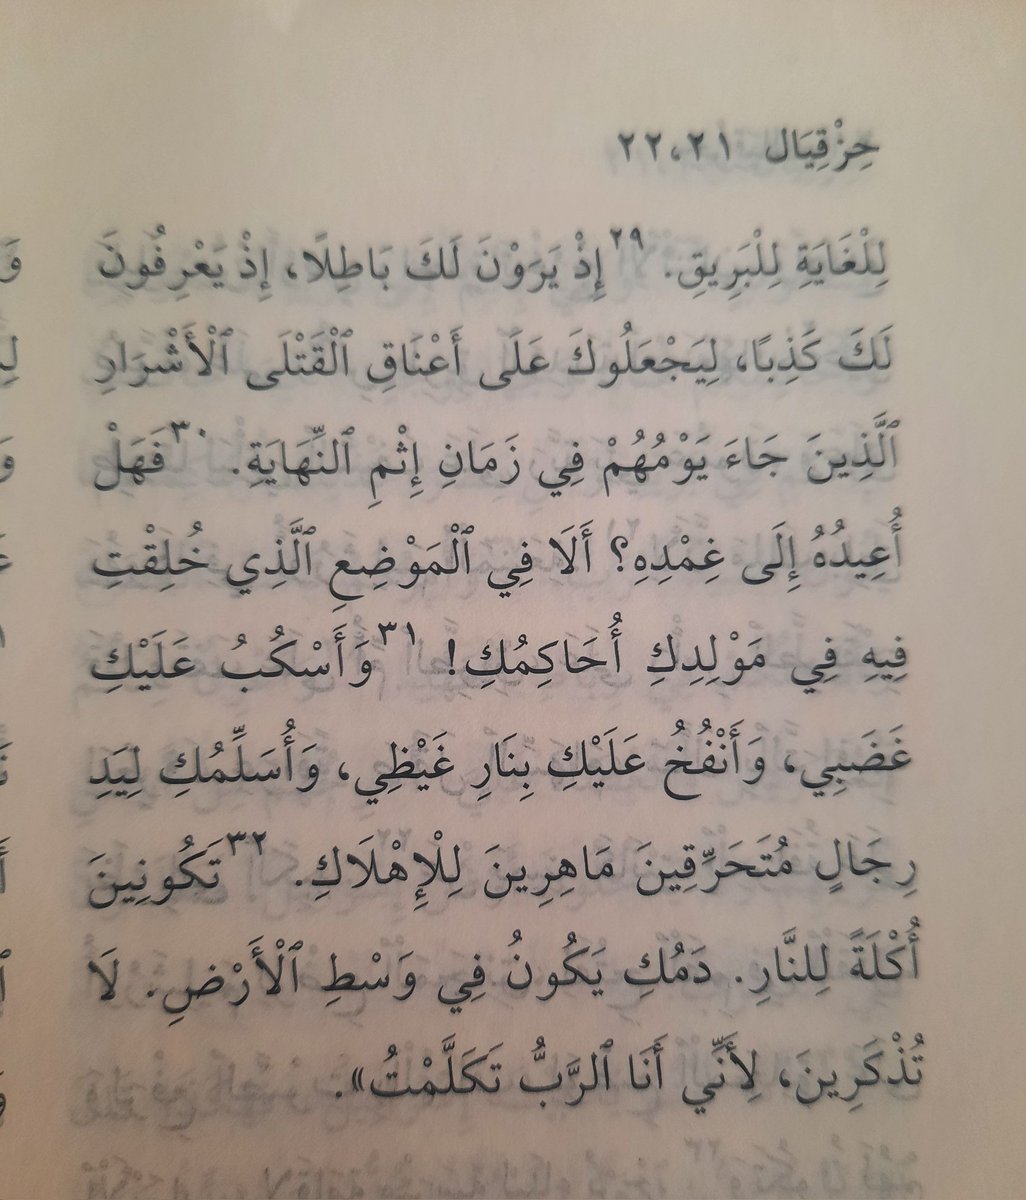 حِزْقِيَال ٢٢،٢١
لِلْغَايَةِ لِلْبَرِيقِ. ٢٩ إِذْ يَرَوْنَ لَكَ بَاطِلًا، إِذْ يَعْرِفُونَ
لَكَ كَذِبًا، لِيَجْعَلُوكَ عَلَى أَعْنَاقِ ٱلْقَتْلَى ٱلْأَشْرَارِ
ٱلَّذِينَ جَاءَ يَوْمُهُمْ فِي زَمَانِ إِثْمِ ٱلنِّهَايَةِ. ٣٠ فَهَلْ
أُعِيدُهُ إِلَى غِمْدِهِ؟ أَلَا فِي ٱلْمَوْضِعِ ٱلَّذِي خُلِقْتِ
فِيهِ فِي مَوْلِدِكِ أُحَاكِمُكِ! ٣١ وَأَسْكُبُ عَلَيْكِ
غَضَبِي، وَأَنْفُخُ عَلَيْكِ بِنَارِ غَيْظِي، وَأُسَلِّمُكِ لِيَدِ
رِجَالٍ مُتَحَرِّقِينَ مَاهِرِينَ لِلْإِهْلَاكِ. ٣٢ تَكُونِينَ
أُكْلَةً لِلنَّارِ. دَمُكِ يَكُونُ فِي وَسْطِ ٱلْأَرْضِ. لَا
تُذْكَرِينَ، لِأَنِّي أَنَا ٱلرَّبُّ تَكَلَّمْتُ».